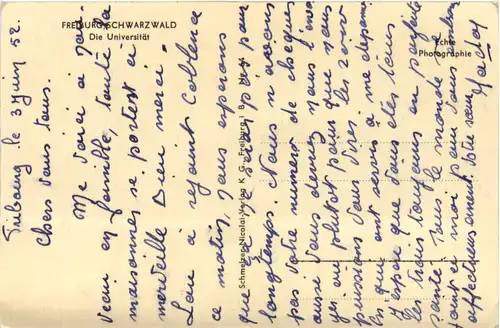 FREIBURG/SCHWARZWALD
Die Universität
Echte
Photographie
Schmelzer-Nicolai-Verlag K. G., Freiburg i. Br.
Fribourg le 3 Juin 52.
Chers vous tous.
Me voici à nou-
veau en famille, toute la
maisonnée se portent à
merveille Dieu merci.
Lou à rejoint Coblence
ce matin, nous esperons
que ce ne sera pas pour
longtemps. Nous n'avons
pas votre numero de cheques
aussi vous devriez nous l'env
yer ou plutot pour que nous
puissions vous virer les 20 fr
que ont servis à me depanner
J'espere que vous êtes tous
les trois toujours en parfaite
santé. Tous le monde se
joint à moi pour vous
affectueusement. Votre soeur